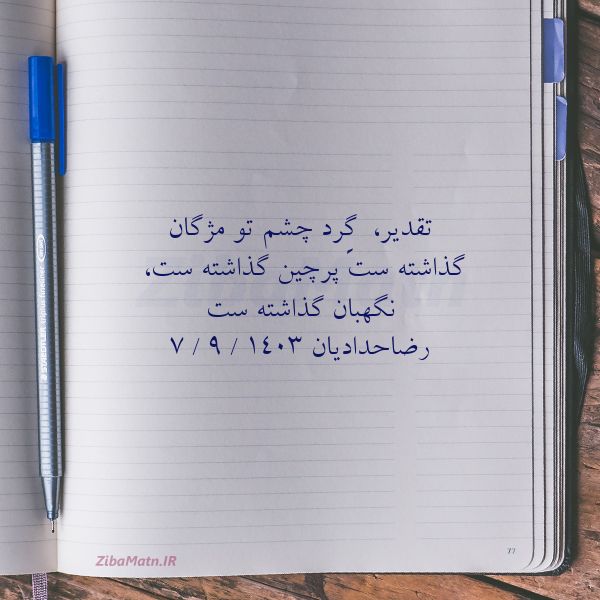 تقدیر، گِرد چشم تو مژگان
گذاشته ست پرچین گذاشته ست،
نگهبان گذاشته ست
رضاحدادیان ۱٤۰۳ / ۹ / ۷
ZibaMatn.IR
77